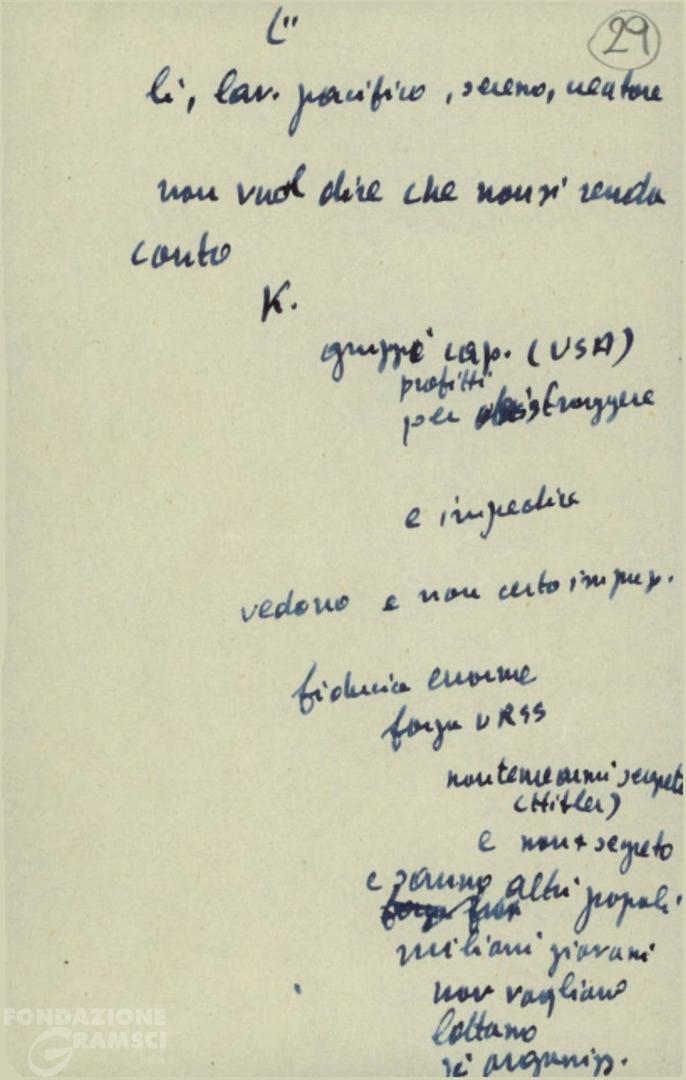 ("
29
li, lav. pacifico, sereno, creatore
non vuol dire che non si renda
conto
K.
gruppi cap. (USA)
profitti
per distruggere
e impedire
vedono e non certo imprep.
fiducia enorme
forza URSS
non teme armi segrete
(Hitler)
e non + segreto
e sanno altri popoli
milioni giovani
non vogliono
lottano
si organizz.
FONDAZIONE
GRAMSCI
onlus